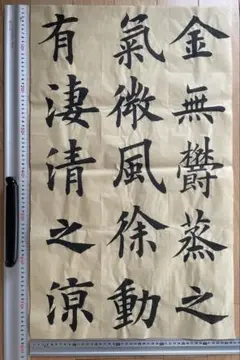 金無鬱蒸之
氣微風徐動
有淒清之涼